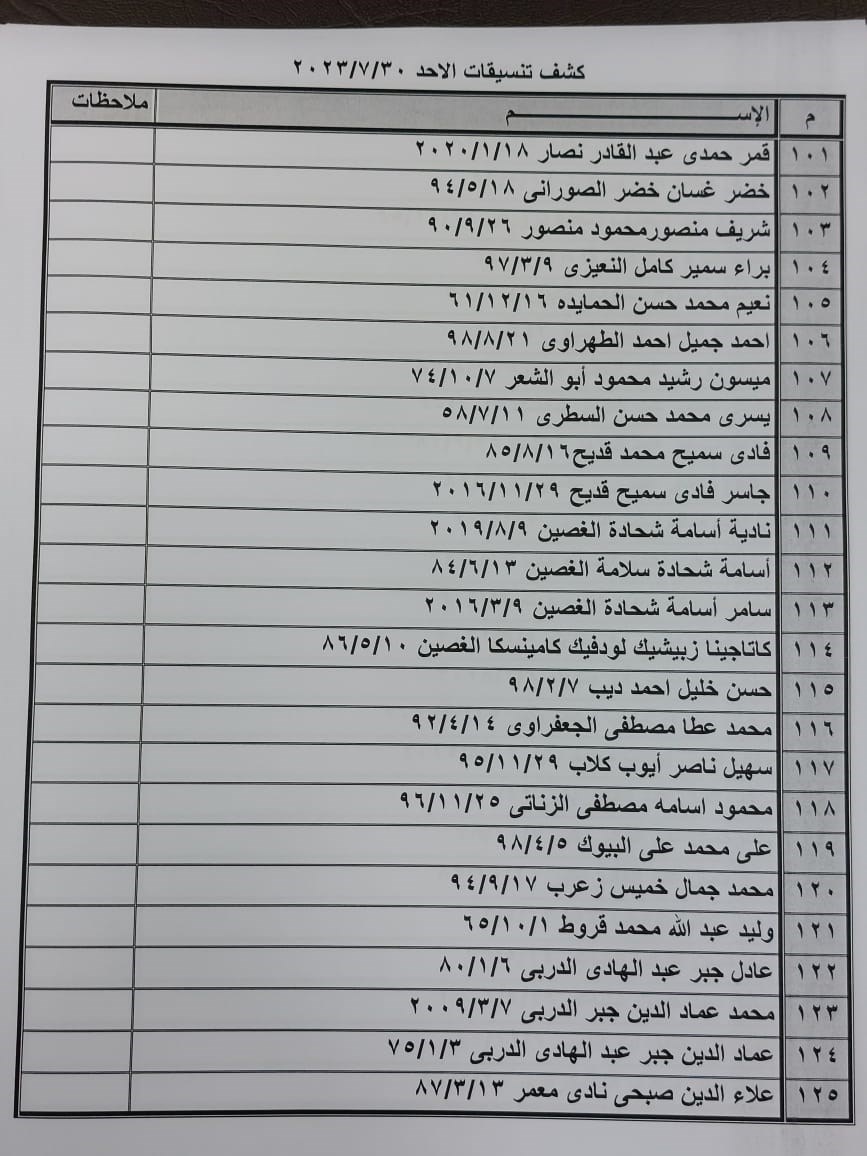 كشف تنسيقات الاحد ٢٠٢٣/٧/٣٠
م الإســـــــــــم ملاحظات
١٠١ قمر حمدى عبد القادر نصار ٢٠٢٠/١/١٨
١٠٢ خضر غسان خضر الصورانى ٩٤/٥/١٨
١٠٣ شريف منصورمحمود منصور ٩٠/٩/٢٦
١٠٤ براء سمير كامل النعيزى ٩٧/٣/٩
١٠٥ نعيم محمد حسن الحمايده ٦١/١٢/١٦
١٠٦ احمد جميل احمد الطهراوى ٩٨/٨/٢١
١٠٧ ميسون رشيد محمود أبو الشعر ٧٤/١٠/٧
١٠٨ يسرى محمد حسن السطرى ٥٨/٧/١١
١٠٩ فادى سميح محمد قديح٨٥/٨/١٦
١١٠ جاسر فادى سميح قديح ٢٠١٦/١١/٢٩
١١١ نادية أسامة شحادة الغصين ٢٠١٩/٨/٩
١١٢ أسامة شحادة سلامة الغصين ٨٤/٦/١٣
١١٣ سامر أسامة شحادة الغصين ٢٠١٦/٣/٩
١١٤ كاتاجينا زبيشيك لودفيك كامينسكا الغصين ٨٦/٥/١٠
١١٥ حسن خليل احمد ديب ٩٨/٢/٧
١١٦ محمد عطا مصطفى الجعفراوى ٩٢/٤/١٤
١١٧ سهيل ناصر أيوب كلاب ٩٥/١١/٢٩
١١٨ محمود اسامه مصطفى الزناتى ٩٦/١١/٢٥
١١٩ على محمد على البيوك ٩٨/٤/٥
١٢٠ محمد جمال خميس زعرب ٩٤/٩/١٧
١٢١ وليد عبد الله محمد قروط ٦٥/١٠/١
١٢٢ عادل جبر عبد الهادى الدربى ٨٠/١/٦
١٢٣ محمد عماد الدين جبر الدربى ٢٠٠٩/٣/٧
١٢٤ عماد الدين جبر عبد الهادى الدربى ٧٥/١/٣
١٢٥ علاء الدين صبحى نادى معمر ٨٧/٣/١٣